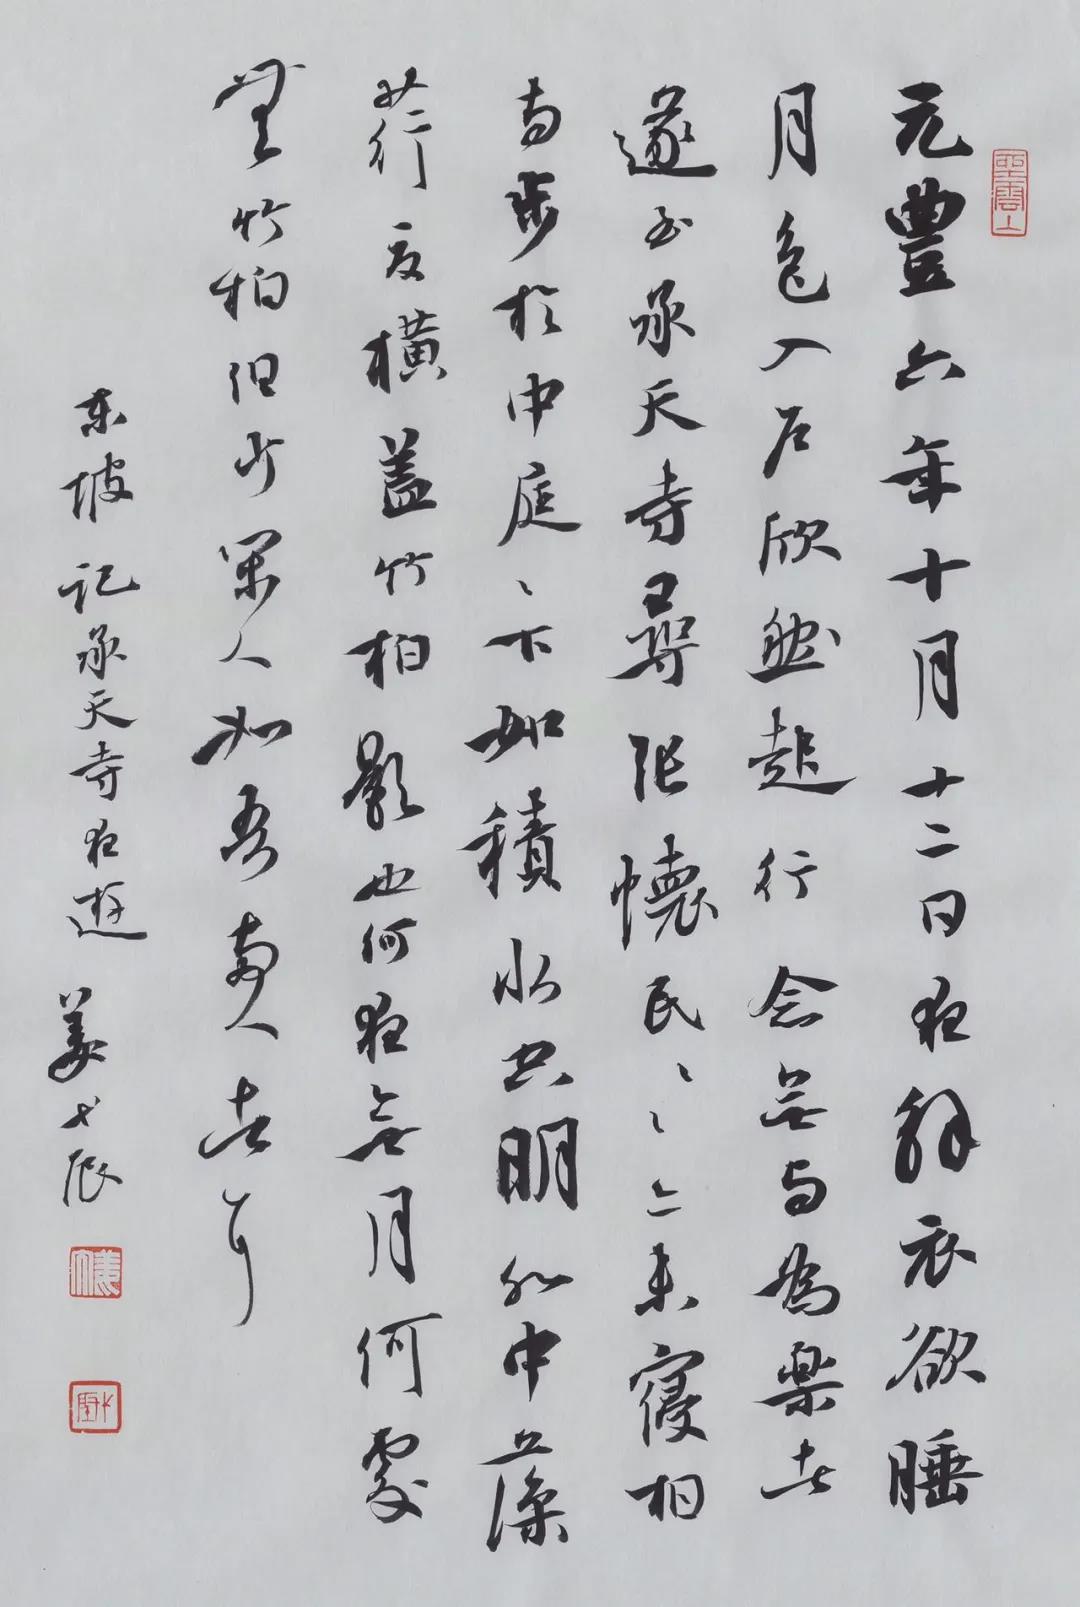 元豐六年十月十二日夜解衣欲睡
月色入戶欣然起行念無与為樂者
遂至承天寺尋張懷民〻〻亦未寢相
与步於中庭〻下如積水空明水中藻
荇交橫蓋竹柏影也何夜無月何處
無竹柏但少閑人如吾兩人者耳
东坡記承天寺夜遊 姜